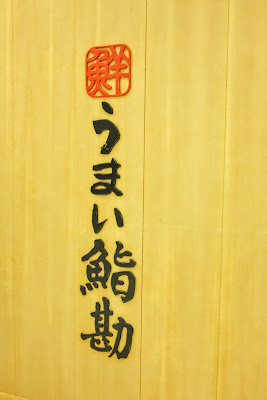 鮮
うまい鮨勘